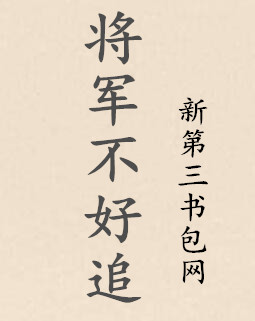 将军不好追
新第三书包网